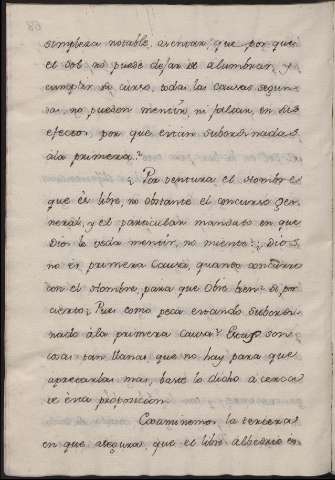 simpleza notable, asentar, que por que
el Sol no puede dejar de alumbrar, y
cumplir su curso, todas las causas segun-
das no pueden mentir, ni faltar, en sus
efectos, por que estan subordinadas
àla primera?
¿Por ventura el Hombre
que es libre, no obstante el concurso ge-
neral, y el particular mandato en que
Dios le veda mentir, no miente? ¿Dios
no es primera Causa, quando concurre
con el Hombre, para que obre bien? Si por
cierto; Pues como peca estando subordi-
nado àla primera Causa? Estas son
cosas tan llanas, que no hay para que
apretarlas mas, baste lo dicho a cerca
de esta proposicion.
Examinemos la tercera
en que asegura, que el libre albedrio es